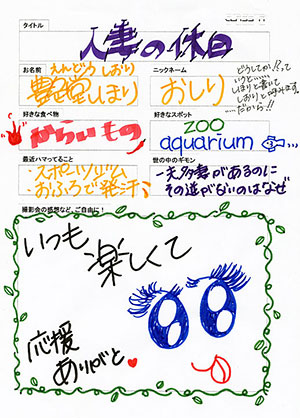 タイトル
人妻の休日
お名前
えんどう しおり
しほり
ニックネーム
おしり
しほりと書いて
しおりと呼みます。
だから!!
好きな食べ物
からいもの
好きなスポット
ZOO
aquarium
最近ハマってること
・スポーツジム
・おふろで発汗
世の中のギモン
一夫多妻があるのに
その逆がないのはなぜ
撮影会の感想など、ご自由に!
いつも
楽しくて
応援
ありがと